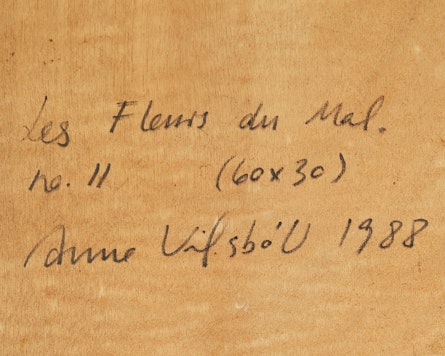 Les Fleurs du Mal.
no. 11 (60x30)
Anne Vilsbóll 1988